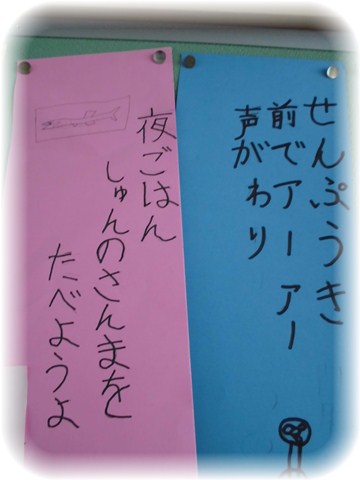 せんぷうき
前でアーアー
声がわり
夜ごはん
しゅんのさんまを
たべようよ